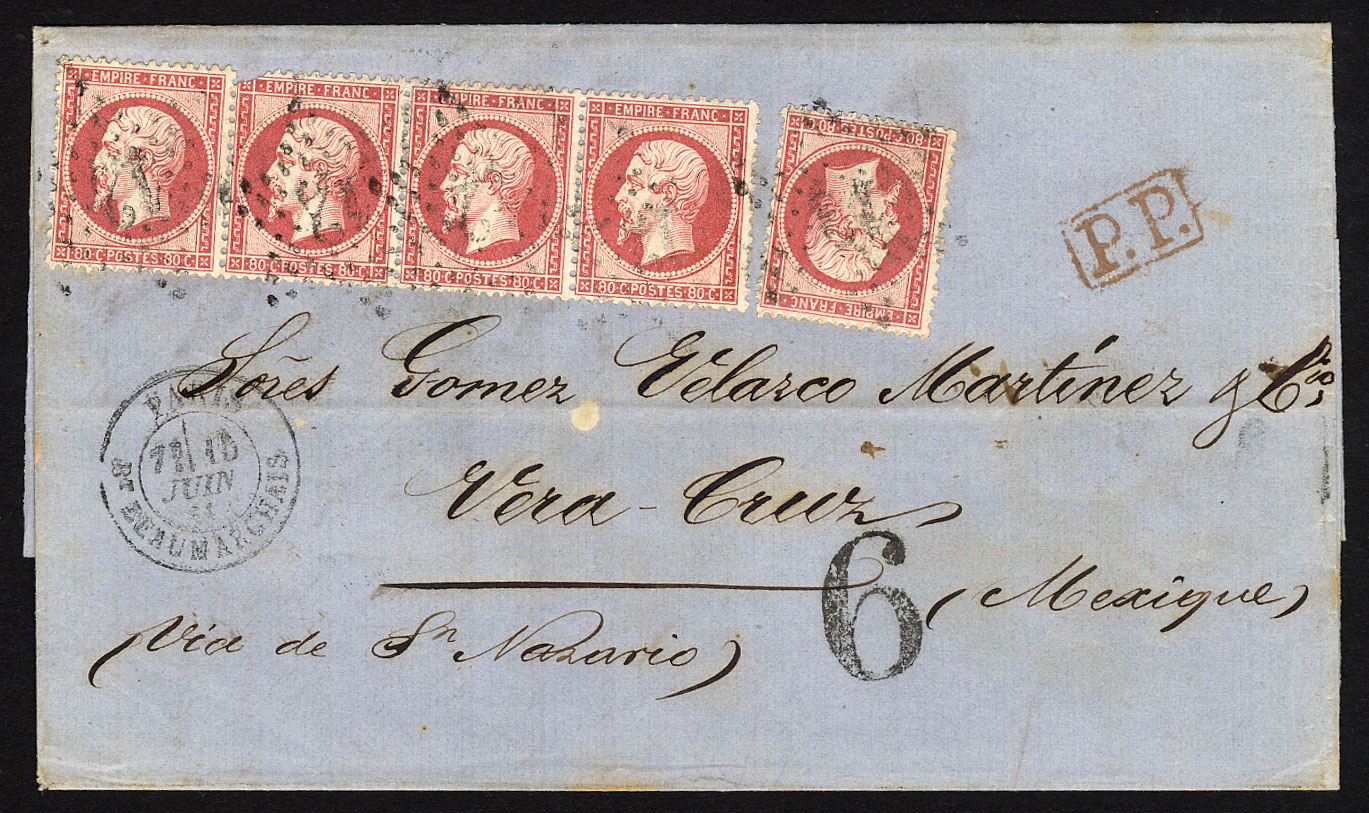 EMPIRE·FRANC·
80·C·POSTES·80·C·
EMPIRE·FRANC·
80·C·POSTES·80·C·
EMPIRE·FRANC·
80·C·POSTES·80·C·
EMPIRE·FRANC·
80·C·POSTES·80·C·
EMPIRE·FRANC
80·C·POSTES·80·C
P.P.
Sōres Gomez Velazco Martínez y
PARIS
JUIN
Bᵈ BEAUMARCHAIS
Vera-Cruz
6
(Mexique)
(Via de Sⁿ Nazario)